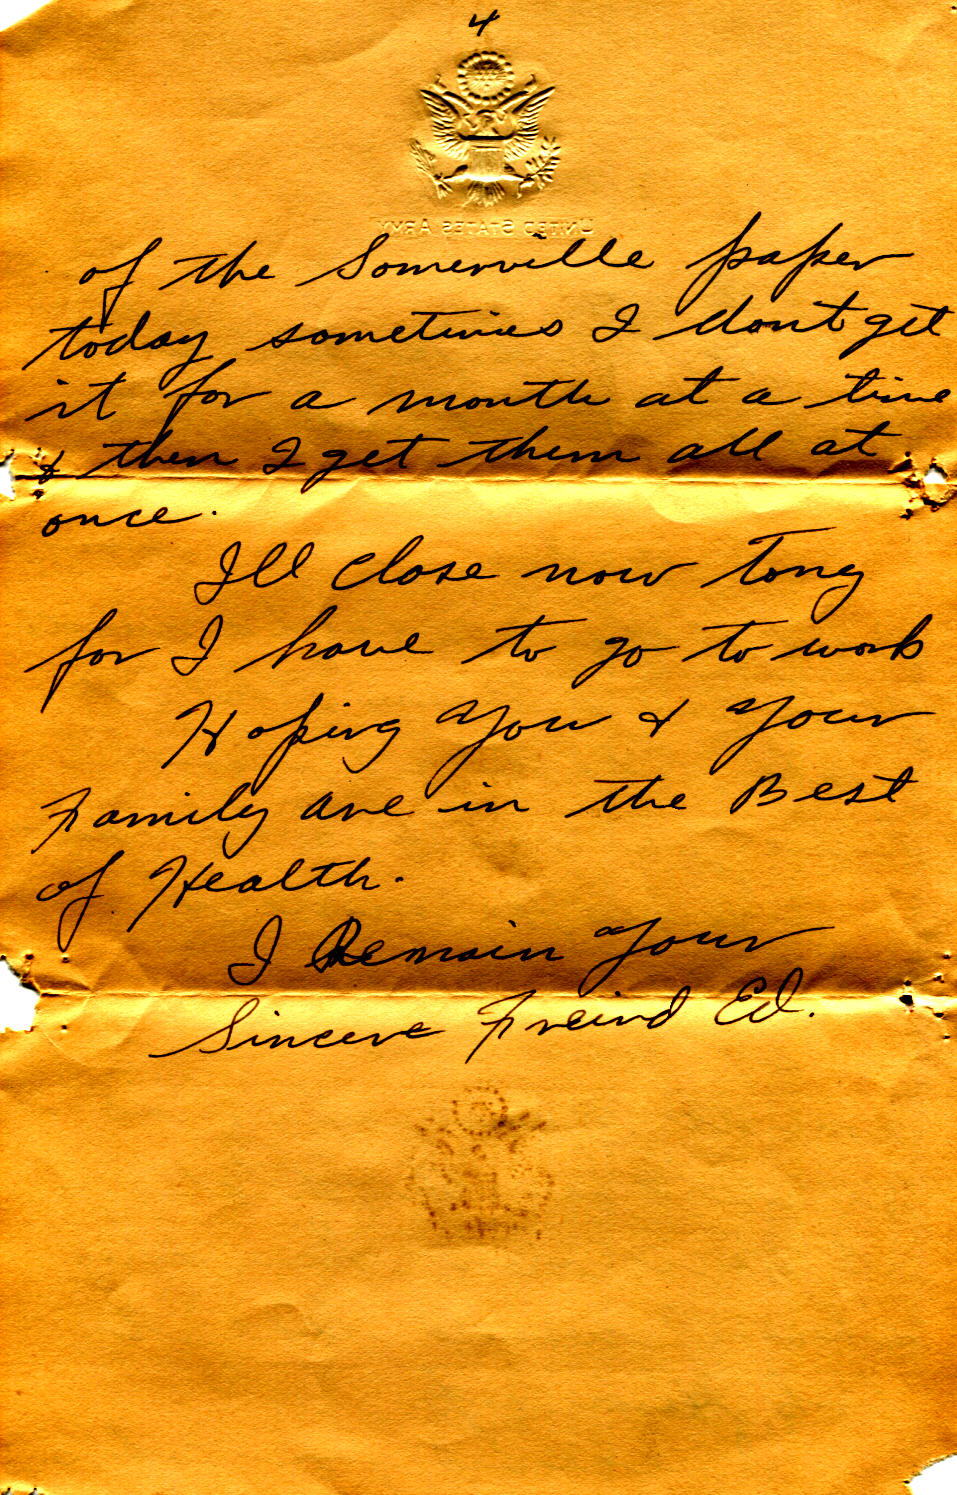 4
UNITED STATES ARMY
of the Somerville paper
today sometimes I don't get
it for a month at a time
& then I get them all at
once.
I'll close now Tony
for I have to go to work
Hoping You & Your
Family are in the Best
of Health.
I Remain Your
Sincere Freind Ed.